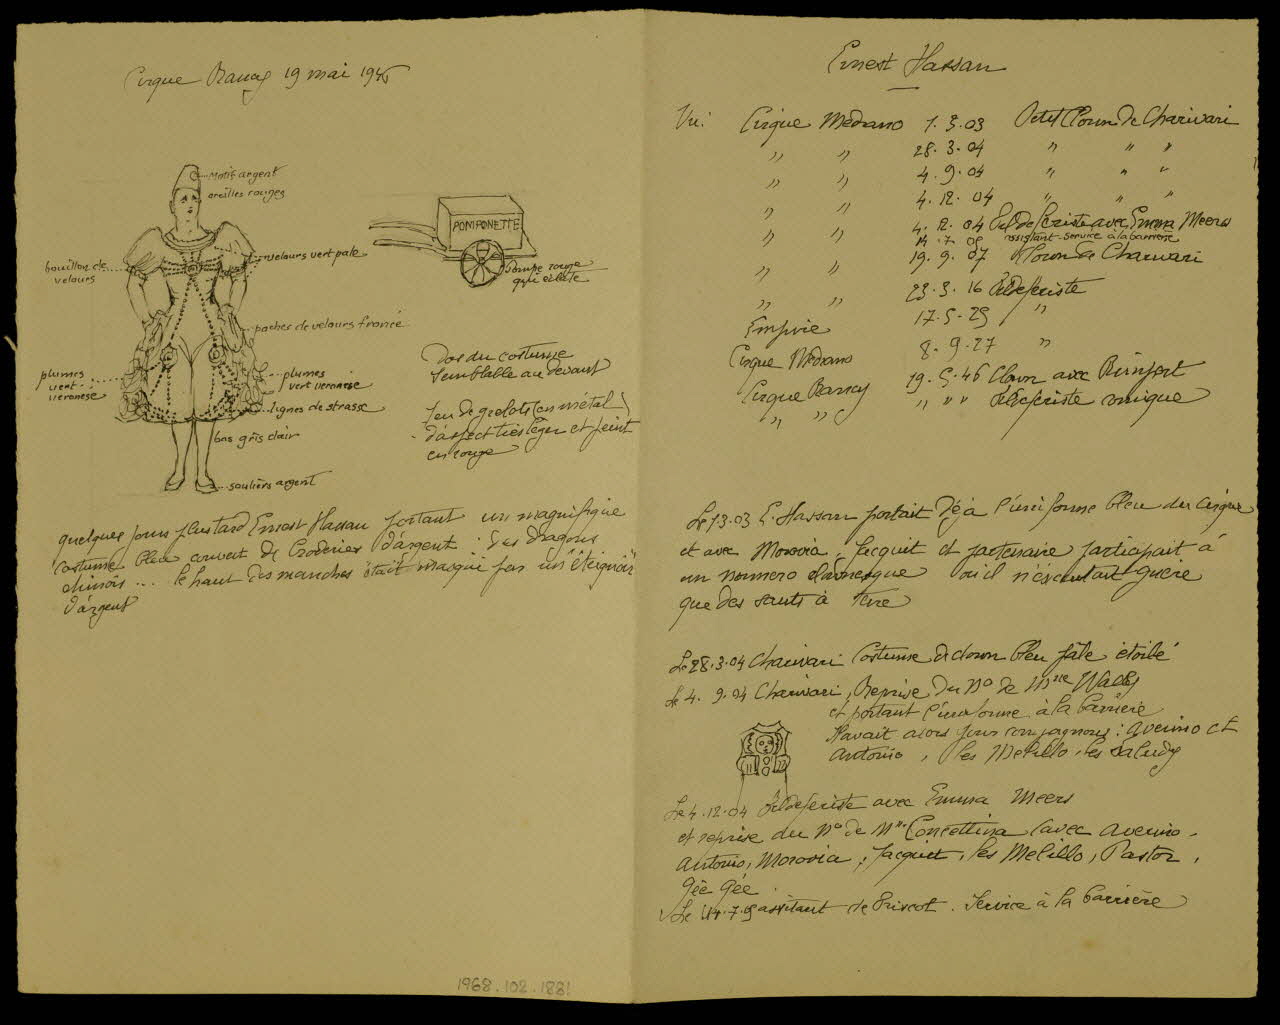 Cirque Rancy 19 mai 1946
Motif argent
oreilles rouges
velours vert pale
bouillon de
velours
poches de velours froncé
plumes
vert
veronèse
plumes
vert veronèse
lignes de strass
bas gris clair
souliers argent
POMPONETTE
Pompe rouge
qui éclate
Dos du costume
semblable au devant
Jeu de grelots (en métal)
d'aspect très léger et peint
en rouge
quelques jours plus tard Ernest Hassan portant un magnifique
costume bleu couvert de broderies d'argent : des dragons
chinois ... le haut des manches était masqué par un "éteignoir"
d'argent
1968.102.1881
Ernest Hassan
Vu: Cirque Médrano 1.3.03 Petit Clown de Charivari
" " 28.3.04 " " "
" " 4.9.04 " " "
" " 4.12.04 " "
" " 4.12.04 Fil de fériste avec Emma Meers
14.7.05 assistant - service à la barrière
" " 19.9.07 Clown de Charivari
" " 23.3.16 Fildefériste
Empire 17.5.25 "
Cirque Médrano 8.9.27 "
Cirque Rancy 19.5.46 Clown avec Rinfort
" " " " " fildefériste comique
Le 1.3.03 E. Hassan portait déjà l'uniforme bleu du cirque
et avec Morovia, Jacquit et partenaire participait à
un numero clownesque où il n'éxecutait guère
que des sauts à terre
Le 28.3.04 Charivari Costume de clown bleu pâle étoilé
Le 4.9.04 Charivari, Reprise du No de Mlle Wally
et portant l'uniforme à la barrière
Il avait alors pour compagnons : Averino et
Antonio, les Melillo, les Saludy
Le 4.12.04 Fildefériste avec Emma Meers
et reprise du No de Mlle Concettina (avec Averino,
Antonio, Morovia, Jacquit, les Melillo, Pastor,
Gée Gée
Le 14.7.05 assistant de Briscot. Service à la barrière